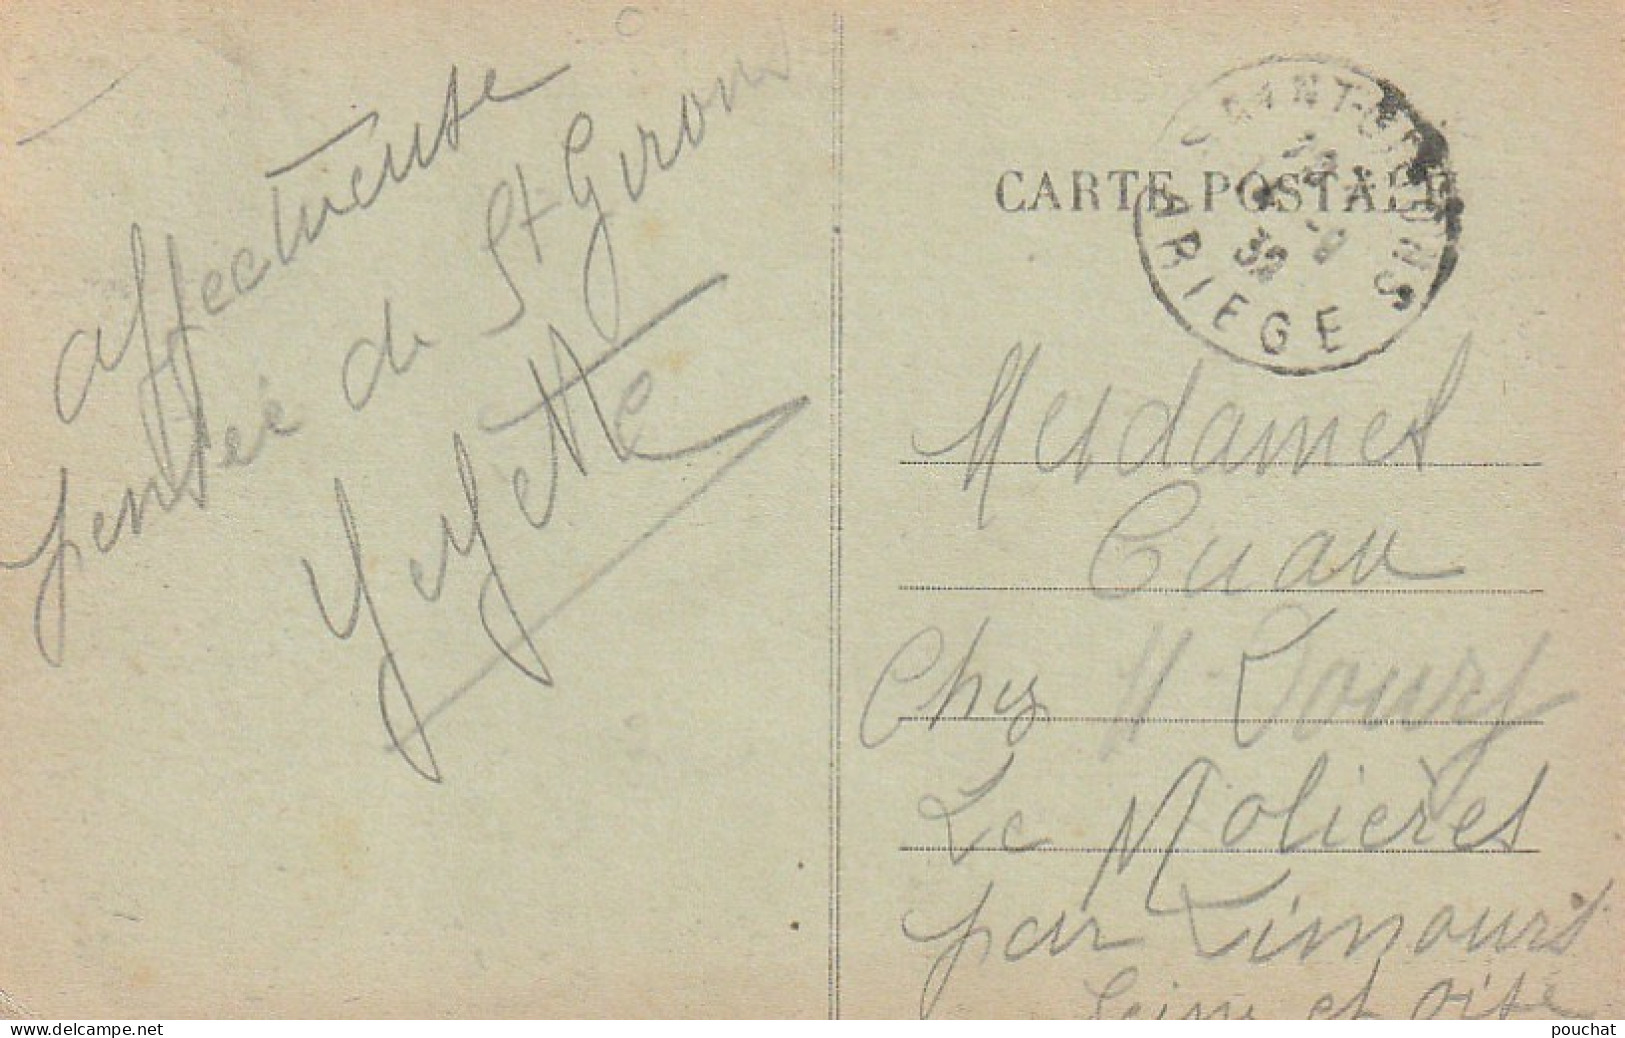 affectueuse
pensée de St Girons
Yeyette
CARTE POSTALE
SAINT-GIRONS
ARIEGE
32
Mesdames
Cuau
Chez M.
Le Molières
par Limours
Seine et Oise
pouchat